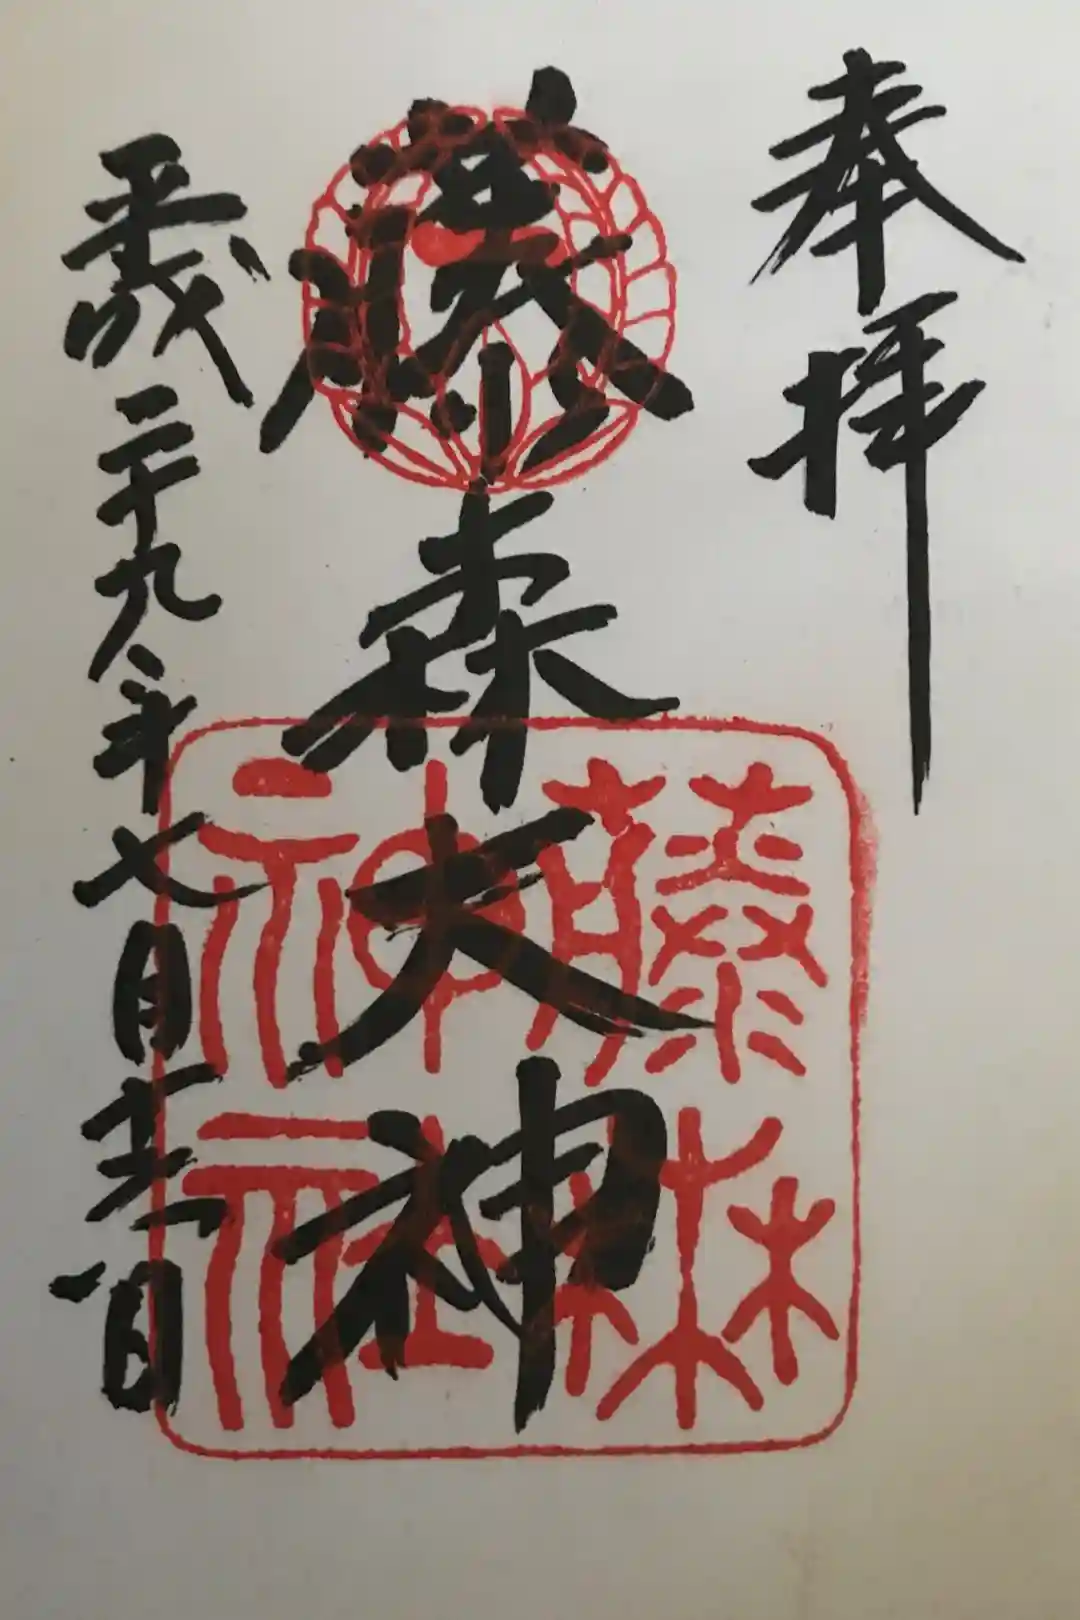 奉拝
藤森大神
平成二十九年七月 日
藤森
神社